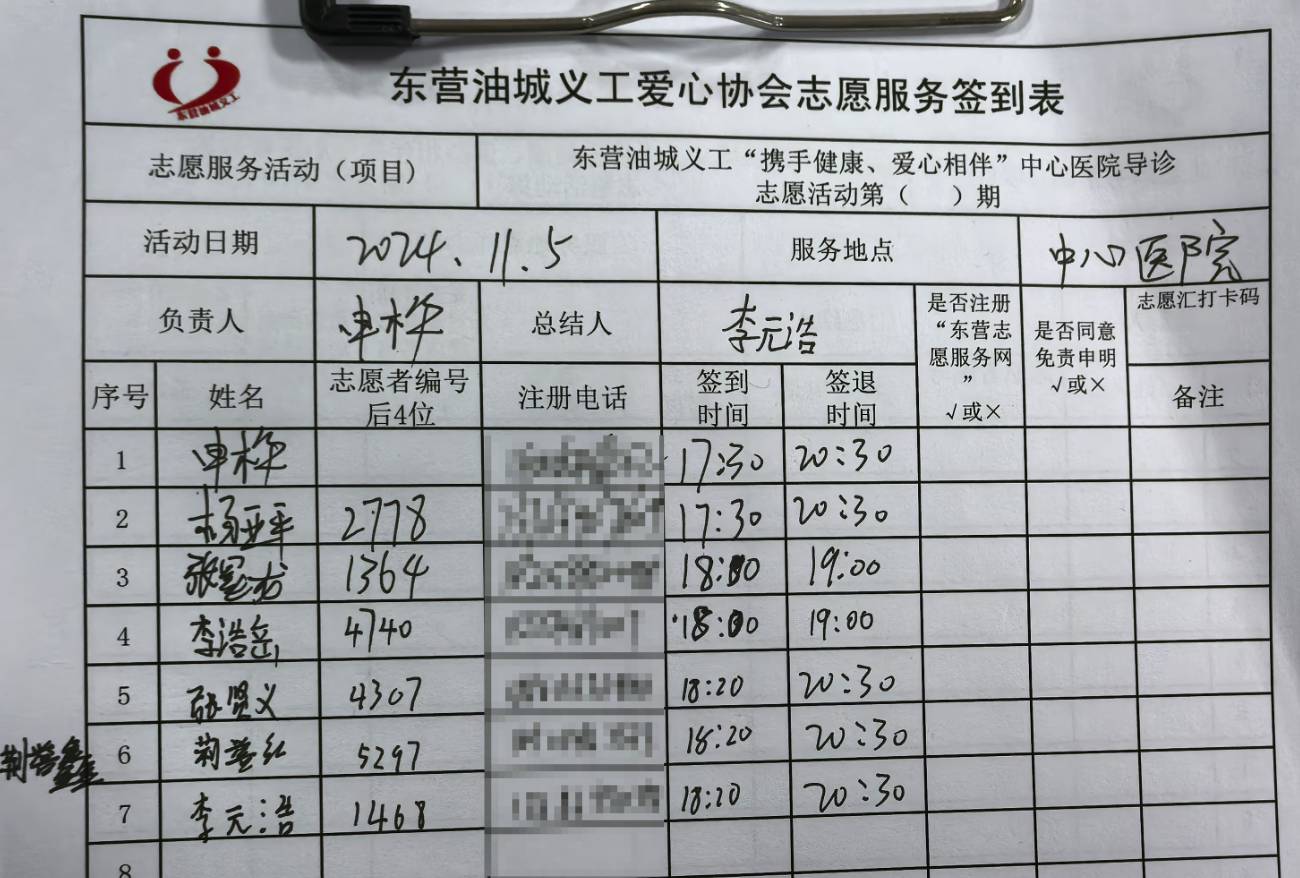 东营油城义工
东营油城义工爱心协会志愿服务签到表
志愿服务活动（项目）
东营油城义工“携手健康、爱心相伴”中心医院导诊
志愿活动第（ ）期
活动日期 2024.11.5 服务地点 中心医院
负责人 申桦 总结人 李元浩
是否注册
“东营志
愿服务网
”
√或×
是否同意
免责申明
√或×
志愿汇打卡码
序号 姓名
志愿者编号
后4位
注册电话
签到
时间
签退
时间
备注
1 申桦 17:30 20:30
2 杨亚平 2778 17:30 20:30
3 1364 18:00 19:00
4 李浩岳 4740 18:00 19:00
5 张贤义 4307 18:20 20:30
6 荆 红 5297 18:20 20:30
7 李元浩 1468 18:20 20:30
8